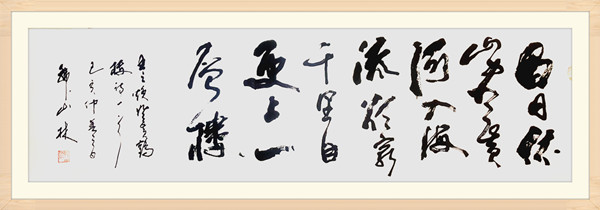 白日依
山尽黄
河入海
流欲穷
千里目
更上一
层楼
王之涣登
楼诗一首
己亥仲春
山林